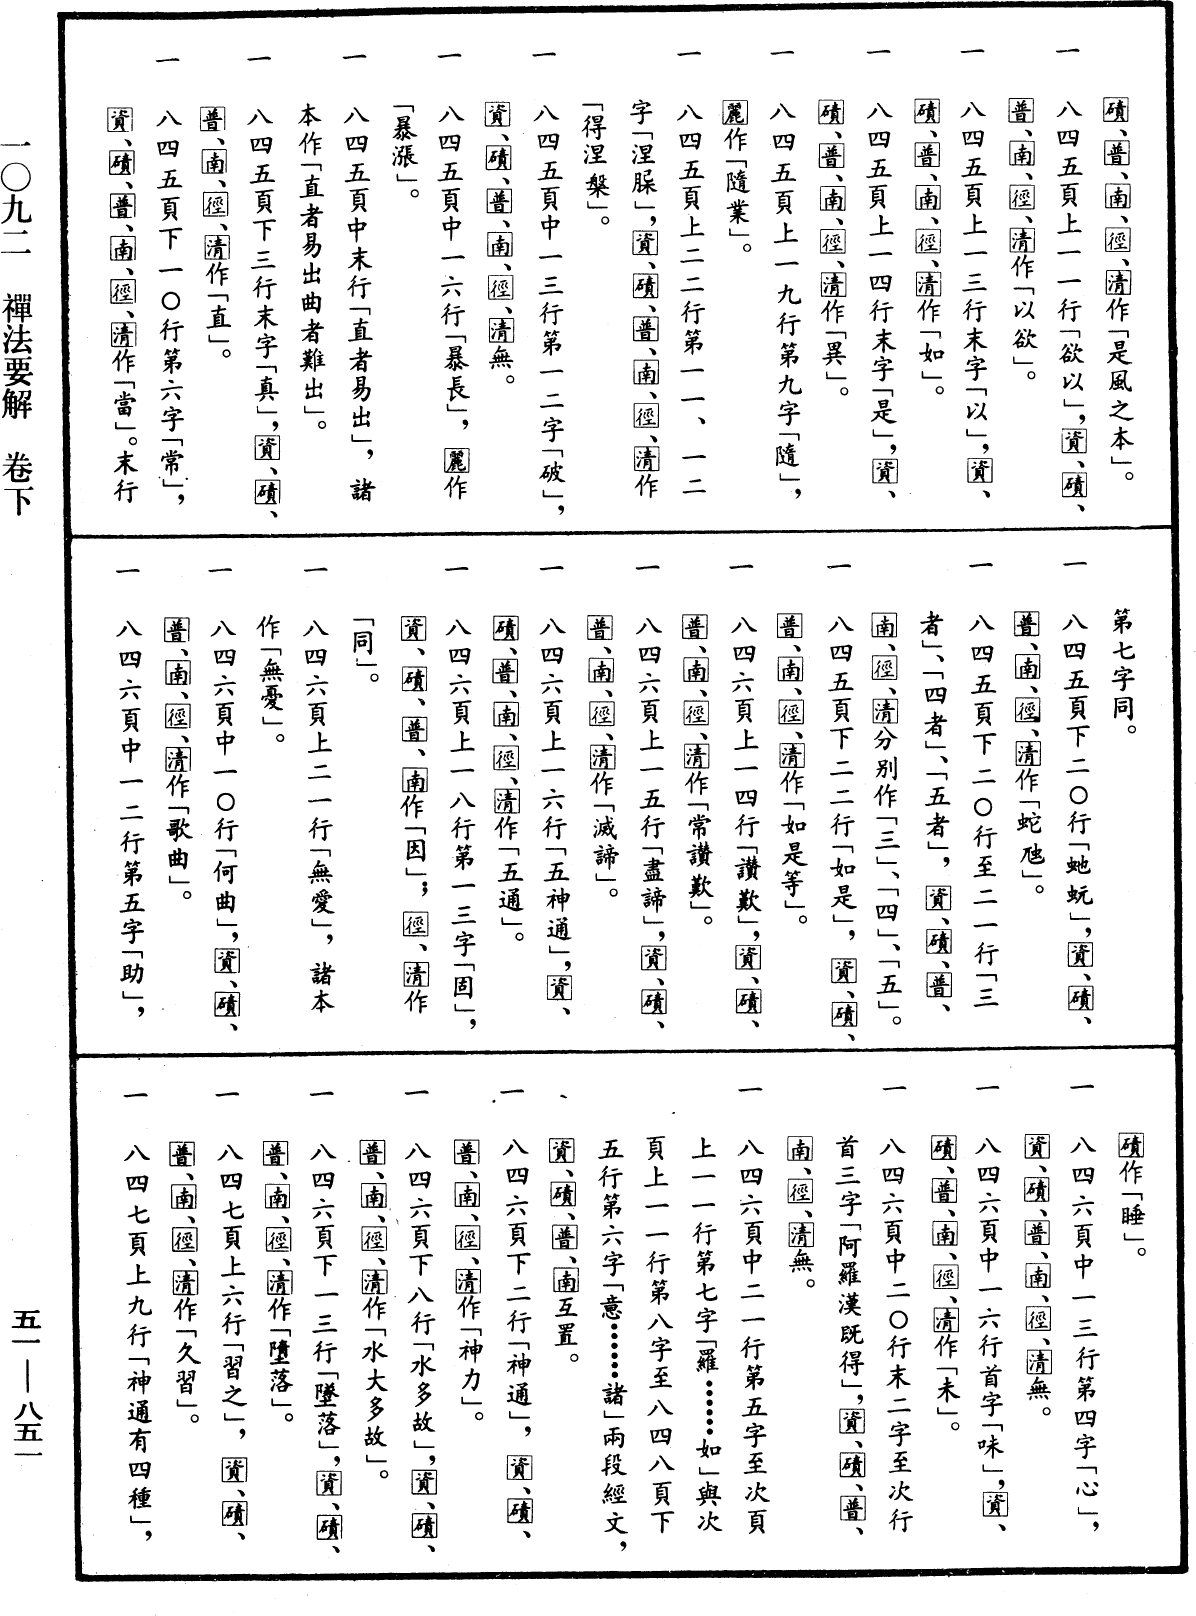 磧、普、南、徑、清作「是風之本」。
一 八四五頁上一一行「欲以」，資、磧、
普、南、徑、清作「以欲」。
一 八四五頁上一三行末字「以」，資、
磧、普、南、徑、清作「如」。
一 八四五頁上一四行末字「是」，資、
磧、普、南、徑、清作「異」。
一 八四五頁上一九行第九字「隨」，
麗作「隨業」。
一 八四五頁上二二行第一一、一二
字「涅臊」，資、磧、普、南、徑、清作
「得涅槃」。
一 八四五頁中一三行第一二字「破」，
資、磧、普、南、徑、清無。
一 八四五頁中一六行「暴長」，麗作
「暴漲」。
一 八四五頁中末行「直者易出」，諸
本作「直者易出曲者難出」。
一 八四五頁下三行末字「真」，資、磧、
普、南、徑、清作「直」。
一 八四五頁下一〇行第六字「常」，
資、磧、普、南、徑、清作「當」。末行
第七字同。
一 八四五頁下二〇行「虵蚖」，資、磧、
普、南、徑、清作「蛇虺」。
一 八四五頁下二〇行至二一行「三
者」、「四者」、「五者」，資、磧、普、
南、徑、清分別作「三」、「四」、「五」。
一 八四五頁下二二行「如是」，資、磧、
普、南、徑、清作「如是等」。
一 八四六頁上一四行「讚歎」，資、磧、
普、南、徑、清作「常讚歎」。
一 八四六頁上一五行「盡諦」，資、磧、
普、南、徑、清作「滅諦」。
一 八四六頁上一六行「五神通」，資、
磧、普、南、徑、清作「五通」。
一 八四六頁上一八行第一三字「固」，
資、磧、普、南作「因」；徑、清作
「同」。
一 八四六頁上二一行「無愛」，諸本
作「無憂」。
一 八四六頁中一〇行「何曲」，資、磧、
普、南、徑、清作「歌曲」。
一 八四六頁中一二行第五字「助」，
磧作「睡」。
一 八四六頁中一三行第四字「心」，
資、磧、普、南、徑、清無。
一 八四六頁中一六行首字「味」，資、
磧、普、南、徑、清作「未」。
一 八四六頁中二〇行末二字至次行
首三字「阿羅漢既得」，資、磧、普、
南、徑、清無。
一 八四六頁中二一行第五字至次頁
上一一行第七字「羅……如」與次
頁上一一行第八字至八四八頁下
五行第六字「意……諸」兩段經文，
資、磧、普、南互置。
一 八四六頁下二行「神通」，資、磧、
普、南、徑、清作「神力」。
一 八四六頁下八行「水多故」，資、磧、
普、南、徑、清作「水大多故」。
一 八四六頁下一三行「墜落」，資、磧、
普、南、徑、清作「墮落」。
一 八四七頁上六行「習之」，資、磧、
普、南、徑、清作「久習」。
一 八四七頁上九行「神通有四種」，
一〇九二 禪法要解 卷下
五一—八五一